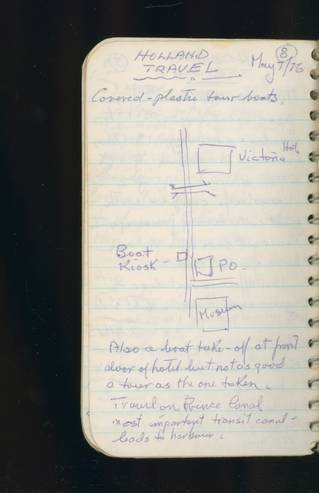 HOLLAND
TRAVEL
8
May 7/76
Covered-plastic tour boats.
Victoria Hotel
Boat
Kiosk -
PO -
Museum
Also a boat take-off at front
door of hotel but not as good
a tour as the one taken.
Travel on Prince Canal
most important transit canal -
leads to harbour.